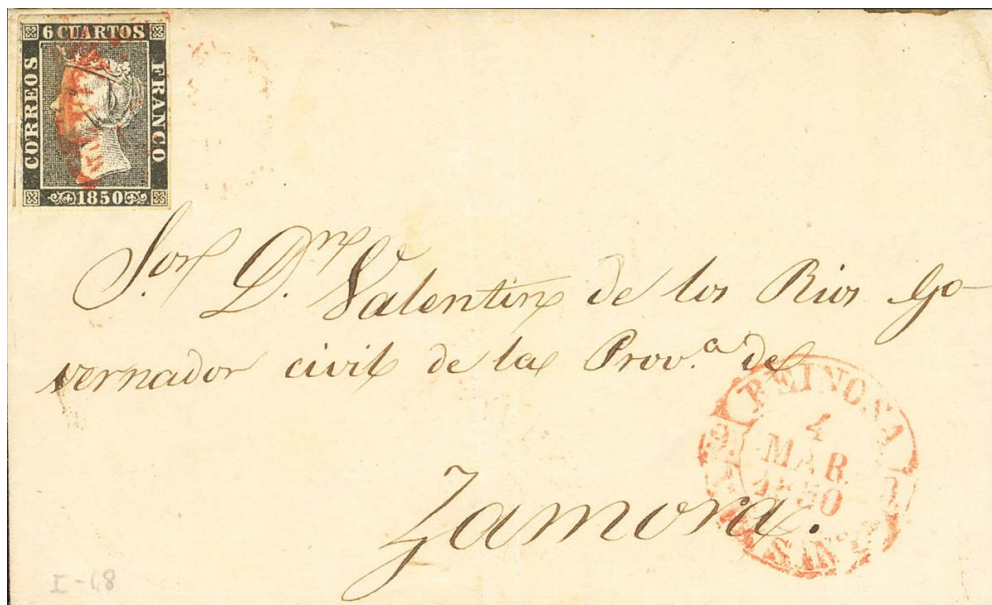 6 CUARTOS
CORREOS
FRANCO
1850
Sor Dn Valentin de los Rios Go-
vernador civil de la Prov.a de
Zamora.
REINOSA
4
MAR
1850
I-18